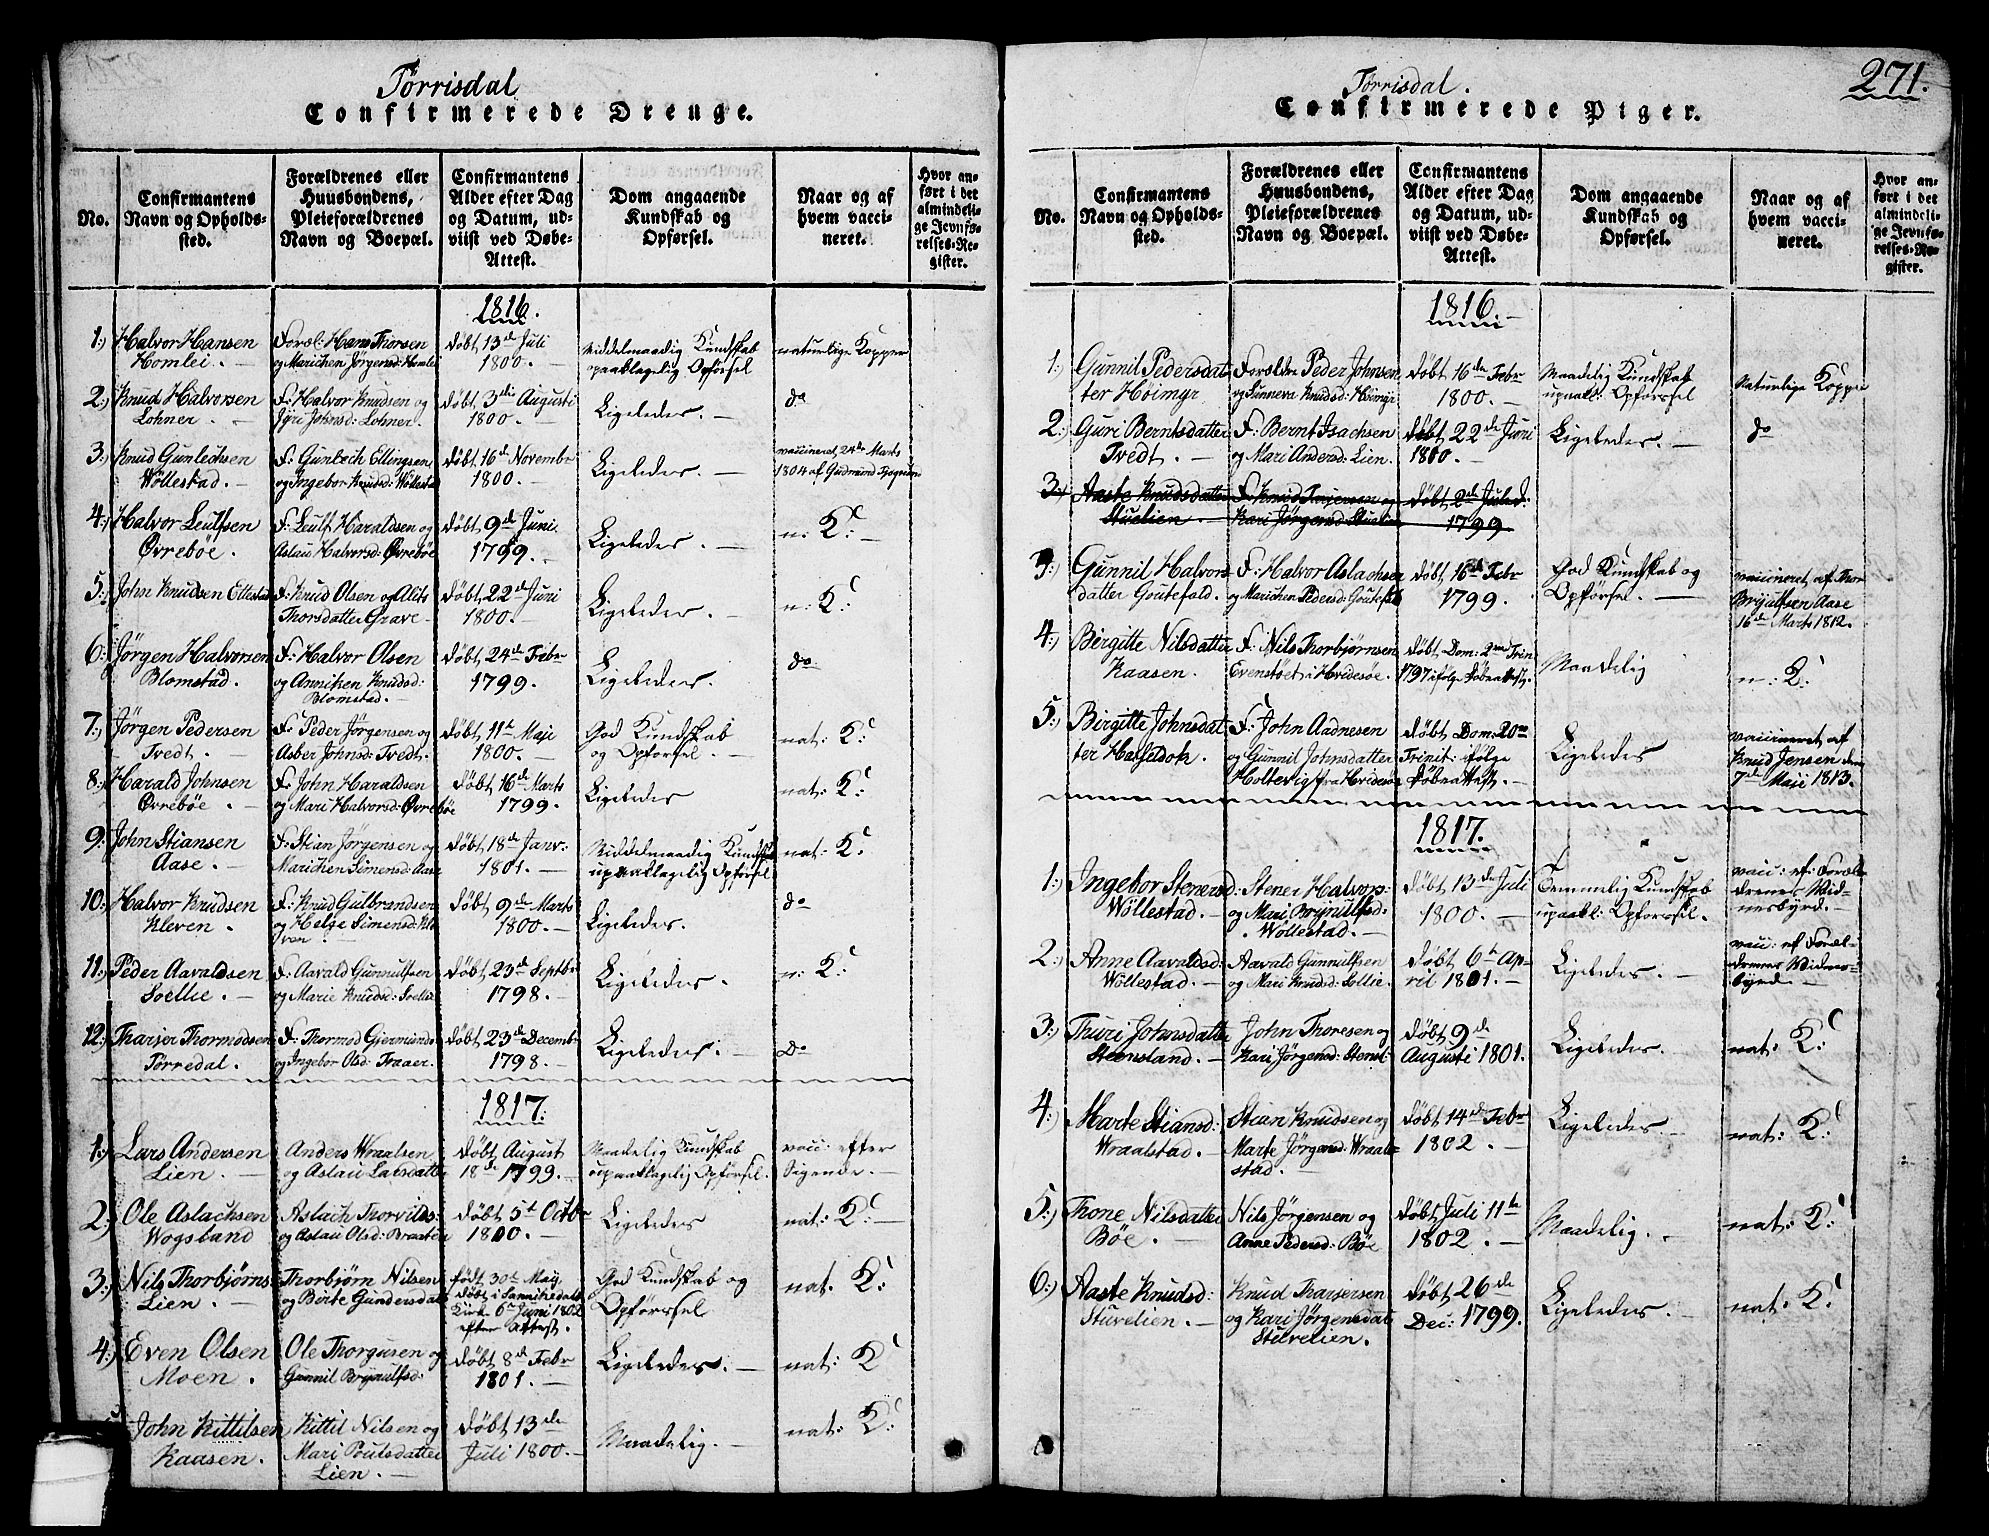 Törrisdal
Confirmerede Drenge.
No.
Confirmantens
Navn og Opholds-
sted.
Forældrenes eller
Huusbondens,
Pleieforældrenes
Navn og Boepæl.
Confirmantens
Alder efter Dag
og Datum, ud-
viist ved Døbe-
Attest.
Dom angaaende
Kundskab og
Opførsel.
Naar og af
hvem vacci-
neret.
Hvor an-
ført i det
almindeli-
ge Jevnfø-
relses-Re-
gister.
1816.
1.) Halvor Hansen
Homlei.
Foræl: Hans Thorsen
og Marichen Jörgensd: Homlei
döbt 13de Juli
1800.
Middelmaadig Kundskab
upaaklagelig Opförsel
naturlige Kopper
2.) Knud Halvorsen
Lohner.
F: Halvor Knudsen og
Jyri Johnsd: Lohner.
döbt 3die Augusti
1800.
Ligeledes.
do
3.) Knud Gunlechsen
Wöllestad.
F: Gunlech Ellingsen
og Ingebor Knudsd: Wöllestad
döbt 16de Novembr
1800.
Ligeledes.
vaccineret 24de Marts
1804 af Gudmund
4.) Halvor Leulfsen
Øvreböe.
F: Leulf Haraldsen og
Aslau Halvorsd: Øvreböe
döbt 9de Juni
1799.
Ligeledes.
n: K:
5.) John Knudsen Ellestad
F: Knud Olsen og Alits
Thorsdatter Grave
döbt 22de Juni
1800.
Ligeledes.
n: K:
6.) Jörgen Halvorsen
Blomstad.
F: Halvor Olsen
og Anniken Knudsd:
Blomstad.
döbt 24de Febr
1799.
Ligeledes.
do
7.) Jörgen Pedersen
Tvedt.
F: Peder Jörgensen og
Asber Johnsd: Tvedt.
döbt 11te Maji
1800.
God Kundskab
og Opförsel.
nat: K:
8.) Harald Johnsen
Øvreböe.
F. John Haraldsen
og Mari Halvorsd: Øvreböe
döbt 16de Marts
1799.
Ligeledes
nat: K:
9.) John Stiansen
Aase.
F. Stian Jörgensen og
Marichen Simensd: Aase
döbt 18de Janv:
1801.
Middelmaadig Kundskab
upaaklagelig Opförsel
nat: K:
10.) Halvor Knudsen
Kleven.
F. Knud Gulbrandsen
og Helge Simensd: Kle
ven.
döbt 9de Marts
1800.
Ligeledes.
do
11.) Peder Aavaldsen
Soellie.
F: Aavald Gunnulfsen
og Marie Knudsd: Soellie
döbt 23de Septbr
1798.
Ligeledes.
n: K:
12.) Tharjer Thormodsen
Törredal.
F. Thormod Gjermunds
og Ingebor Olsd: Traaer.
döbt 23de Decembr
1798.
Ligeledes.
Do
1817.
1.) Lars Andersen
Lien.
Anders Wraalsen
og Aslau Larsdatter
döbt August
18de 1799.
Maadelig Kundskab
upaaklagelig Opförsel.
vacc: efter
Sigende.
2.) Ole Aslachsen
Wogsland
Aslach Thorvilds:
og Aslau Olsd:
döbt 5t Octbr
1800.
Ligeledes
nat: K:
3.) Nils Thorbjörns
Lien.
Thorbjörn Nilsen
og Berte Gundersdatt
födt 30te Maij,
döbt i Sannikedals
Kirk 6te Juni 1802
efter Attest.
God Kundskab og
Opförsel
nat. K:
4.) Even Olsen
Moen.
Ole Thorgusen og
Gunnil Brynulfsd:
döbt 8de Febr
1801.
Ligeledes.
nat: K:
John Kittilsen
Kaasen.
Kittil Nilsen og
Mari Poulsdatter
Lien.
döbt 13de
Juli 1800.
Maadelig.
nat: K:
Törrisdal.
271.
Confirmerede Piger.
No.
Confirmantens
Navn og Opholds-
sted.
Forældrenes eller
Huusbondens,
Pleieforældrenes
Navn og Boepæl.
Confirmantens
Alder efter Dag
og Datum, ud-
viist ved Døbe-
Attest.
Dom angaaende
Kundskab og
Opførsel.
Naar og af
hvem vacci-
neret.
Hvor an-
ført i det
almindeli-
ge Jevnfø-
relses-Re-
gister.
1816.
1.) Gunnil Pedersdat
ter Höimyr
Foreldre Peder Johnsen
og Sunneva Knudsd: Höimyr
döbt 16de Febr
1800.
Maadelig Kundskab
upaakl: Opförsel
Naturlige Kopper
2.) Guri Berntsdatter
Tvedt.
F: Bernt Isachsen
og Mari Andersd: Lien.
döbt 22de Juni
1800.
Ligeledes.
do
3.) Aaste Knudsdatter
Stuelien.
F: Knud Tarjersen og
Kari Jörgensd: Stuelien
döbt 2de Juledag
1799
3.) Gunnil Halvors
datter Goutefald.
F: Halvor Aslachsen
og Marichen Pedersd: Goutefald
döbt 16de Febr
1799.
God Kundskab og
Opförsel.
vaccineret af Thor
Brijulfsen Aase
16de Marts 1812.
4.) Birgitte Nilsdatter
Kaasen.
F. Nils Thorbjörnsen
Evenstöet i Hvidesöe.
döbt Dom: 2den Trin
1797 ifölge Döbeattest.
Maadelig
n: K:
5.) Birgitte Johnsdat
ter Hasseldok.
F: John Aadnesen
og Gunnil Johnsdatter
Holtevig fra Hvidesöe
döbt Dom: 20de
Trinit: ifölge
Döbeattest.
Ligeledes
vaccineret af
Knud Jensen den
7de Maii 1813.
1817.
1.) Ingebor Stenersd:
Wöllestad.
Stener Halvors:
og Mari Brynulfsd:
Wöllestad.
döbt 13de Juli
1800.
Temmelig Kundskab
upaakl: Opförsel.
vacc: ef: Foræl-
drenes Vid-
nesbyrd.
2.) Anne Aavaldsd:
Wöllestad.
Aavald Gunnulfsen
og Mari Knudsd: Sollie.
döbt 6te Ap-
ril 1801.
Ligeledes.
vacc: ef Foræl-
drenes Vidnes-
byrd.
3.) Thuri Johnsdatter
Steensland.
John Thoresen og
Kari Jörgensd: Stensl:
döbt 9de
Augusti 1801.
Ligeledes.
nat: K:
4.) Marte Stiansd:
Wraalstad.
Stian Knudsen og
Marte Jörgensd: Wraal-
stad.
döbt 14de Febr
1802.
Ligeledes.
nat: K:
5.) Thone Nilsdatter
Böe.
Nils Jörgensen og
Anne Pedersd: Böe
döbt Juli 11te
1802.
Maadelig.
nat: K:
6.) Aaste Knudsd:
Sturelien.
Knud Tharjersen
og Kari Jörgensdat
Sturelien.
döbt 26de
Dec: 1799.
Ligeledes.
nat: K: